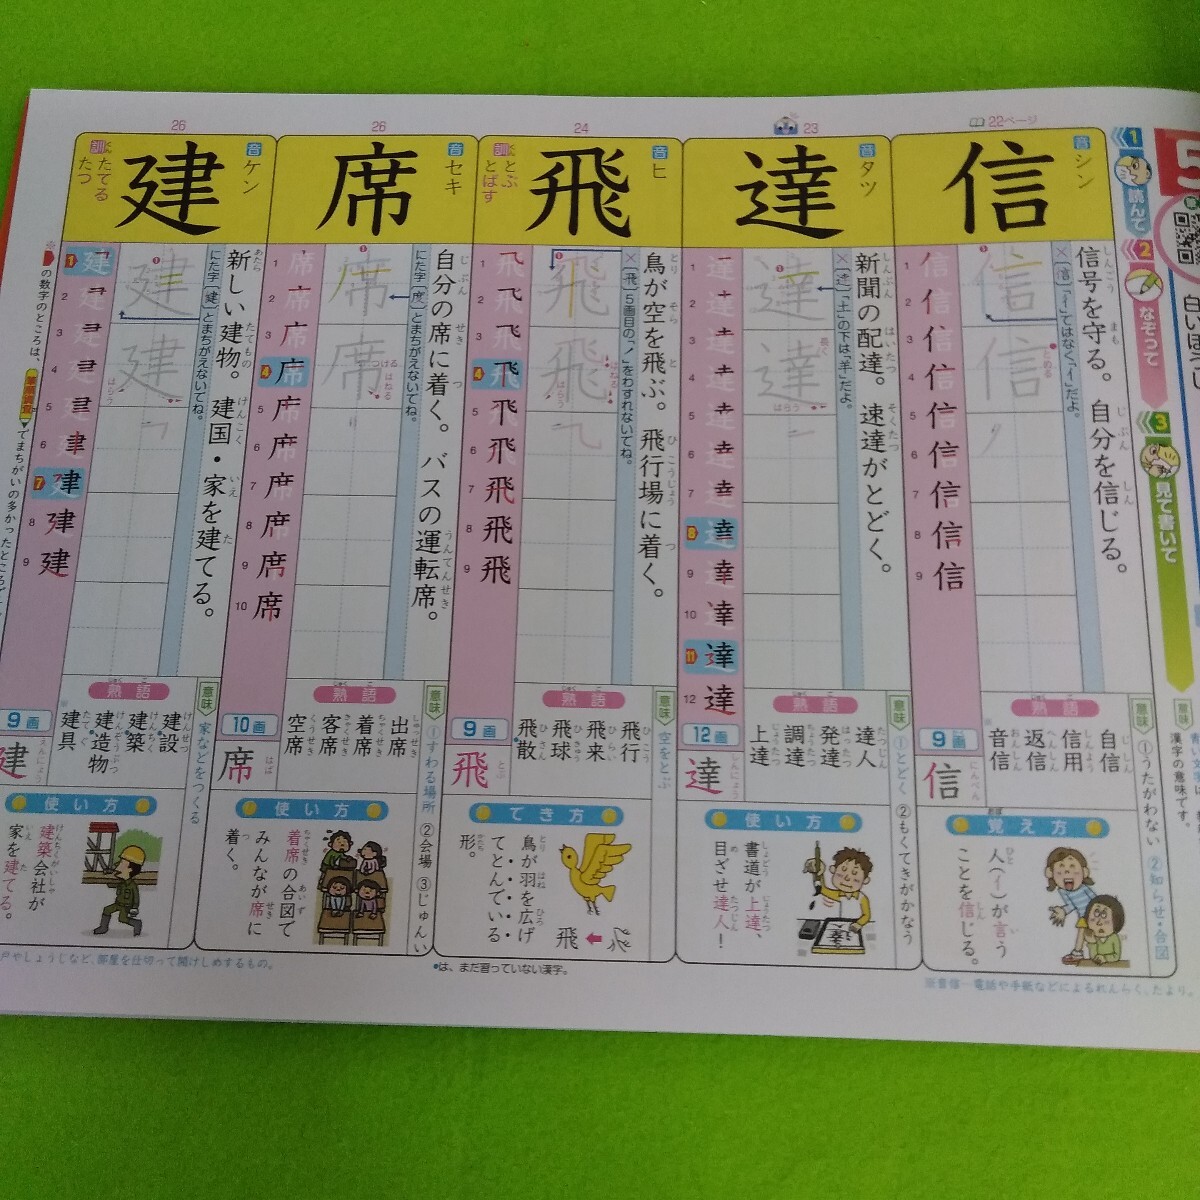 5
白いぼうし
1 読んで
2 なぞって
3 見て書いて
意味
漢字の意味です。
22ページ
信
音 シン
信号を守る。自分を信じる。
×(信)「イ」ではなく「亻」だよ。
とめる
1
2
3
4
5
6
7
8
9
信
9画
信 にんべん
意味 ①うたがわない ②知らせ・合図
熟語
自信
信用
返信
音信
覚え方
人(亻)が言う
ことを信じる。
23
達
音 タツ
新聞の配達。速達がとどく。
「土」の下は「羊」だよ。
長く
はらう
1
2
3
4
5
6
7
8
9
10
11
12
達
12画
達 しんにょう
意味 ①とどく ②もくてきがかなう
熟語
達人
発達
調達
上達
使い方
書道が上達、
目ざせ達人！
24
飛
音 ヒ
訓 とぶ
とばす
鳥が空を飛ぶ。飛行場に着く。
×(飛)5画目の「ノ」をわすれないでね。
はねる
はらう
1
2
3
4
5
6
7
8
9
飛
9画
飛 とぶ
意味 空をとぶ
熟語
飛行
飛来
飛球
飛散
でき方
鳥が羽を広げ
てとんでいる
形。
飛
26
席
音 セキ
自分の席に着く。バスの運転席。
にた字(度)とまちがえないでね。
はねる
1
2
3
4
5
6
7
8
9
10
席
10画
席 はば
意味 ①すわる場所 ②会場 ③じゅんい
熟語
出席
着席
客席
空席
使い方
着席の合図で
みんなが席に
着く。
26
建
音 ケン
訓 たてる
たつ
新しい建物。建国・家を建てる。
にた字(健)とまちがえないでね。
はらう
1
2
3
4
5
6
7
8
9
建
9画
建 えんにょう
意味 家などをつくる
熟語
建設
建築
建造物
建具
使い方
建築会社が
家を建てる。
の数字のところは、
でまちがいの多かったところ
戸やしょうじなど、部屋を仕切って開けしめするもの。
•は、まだ習っていない漢字。
※音信…電話や手紙などによるれんらく、たより。